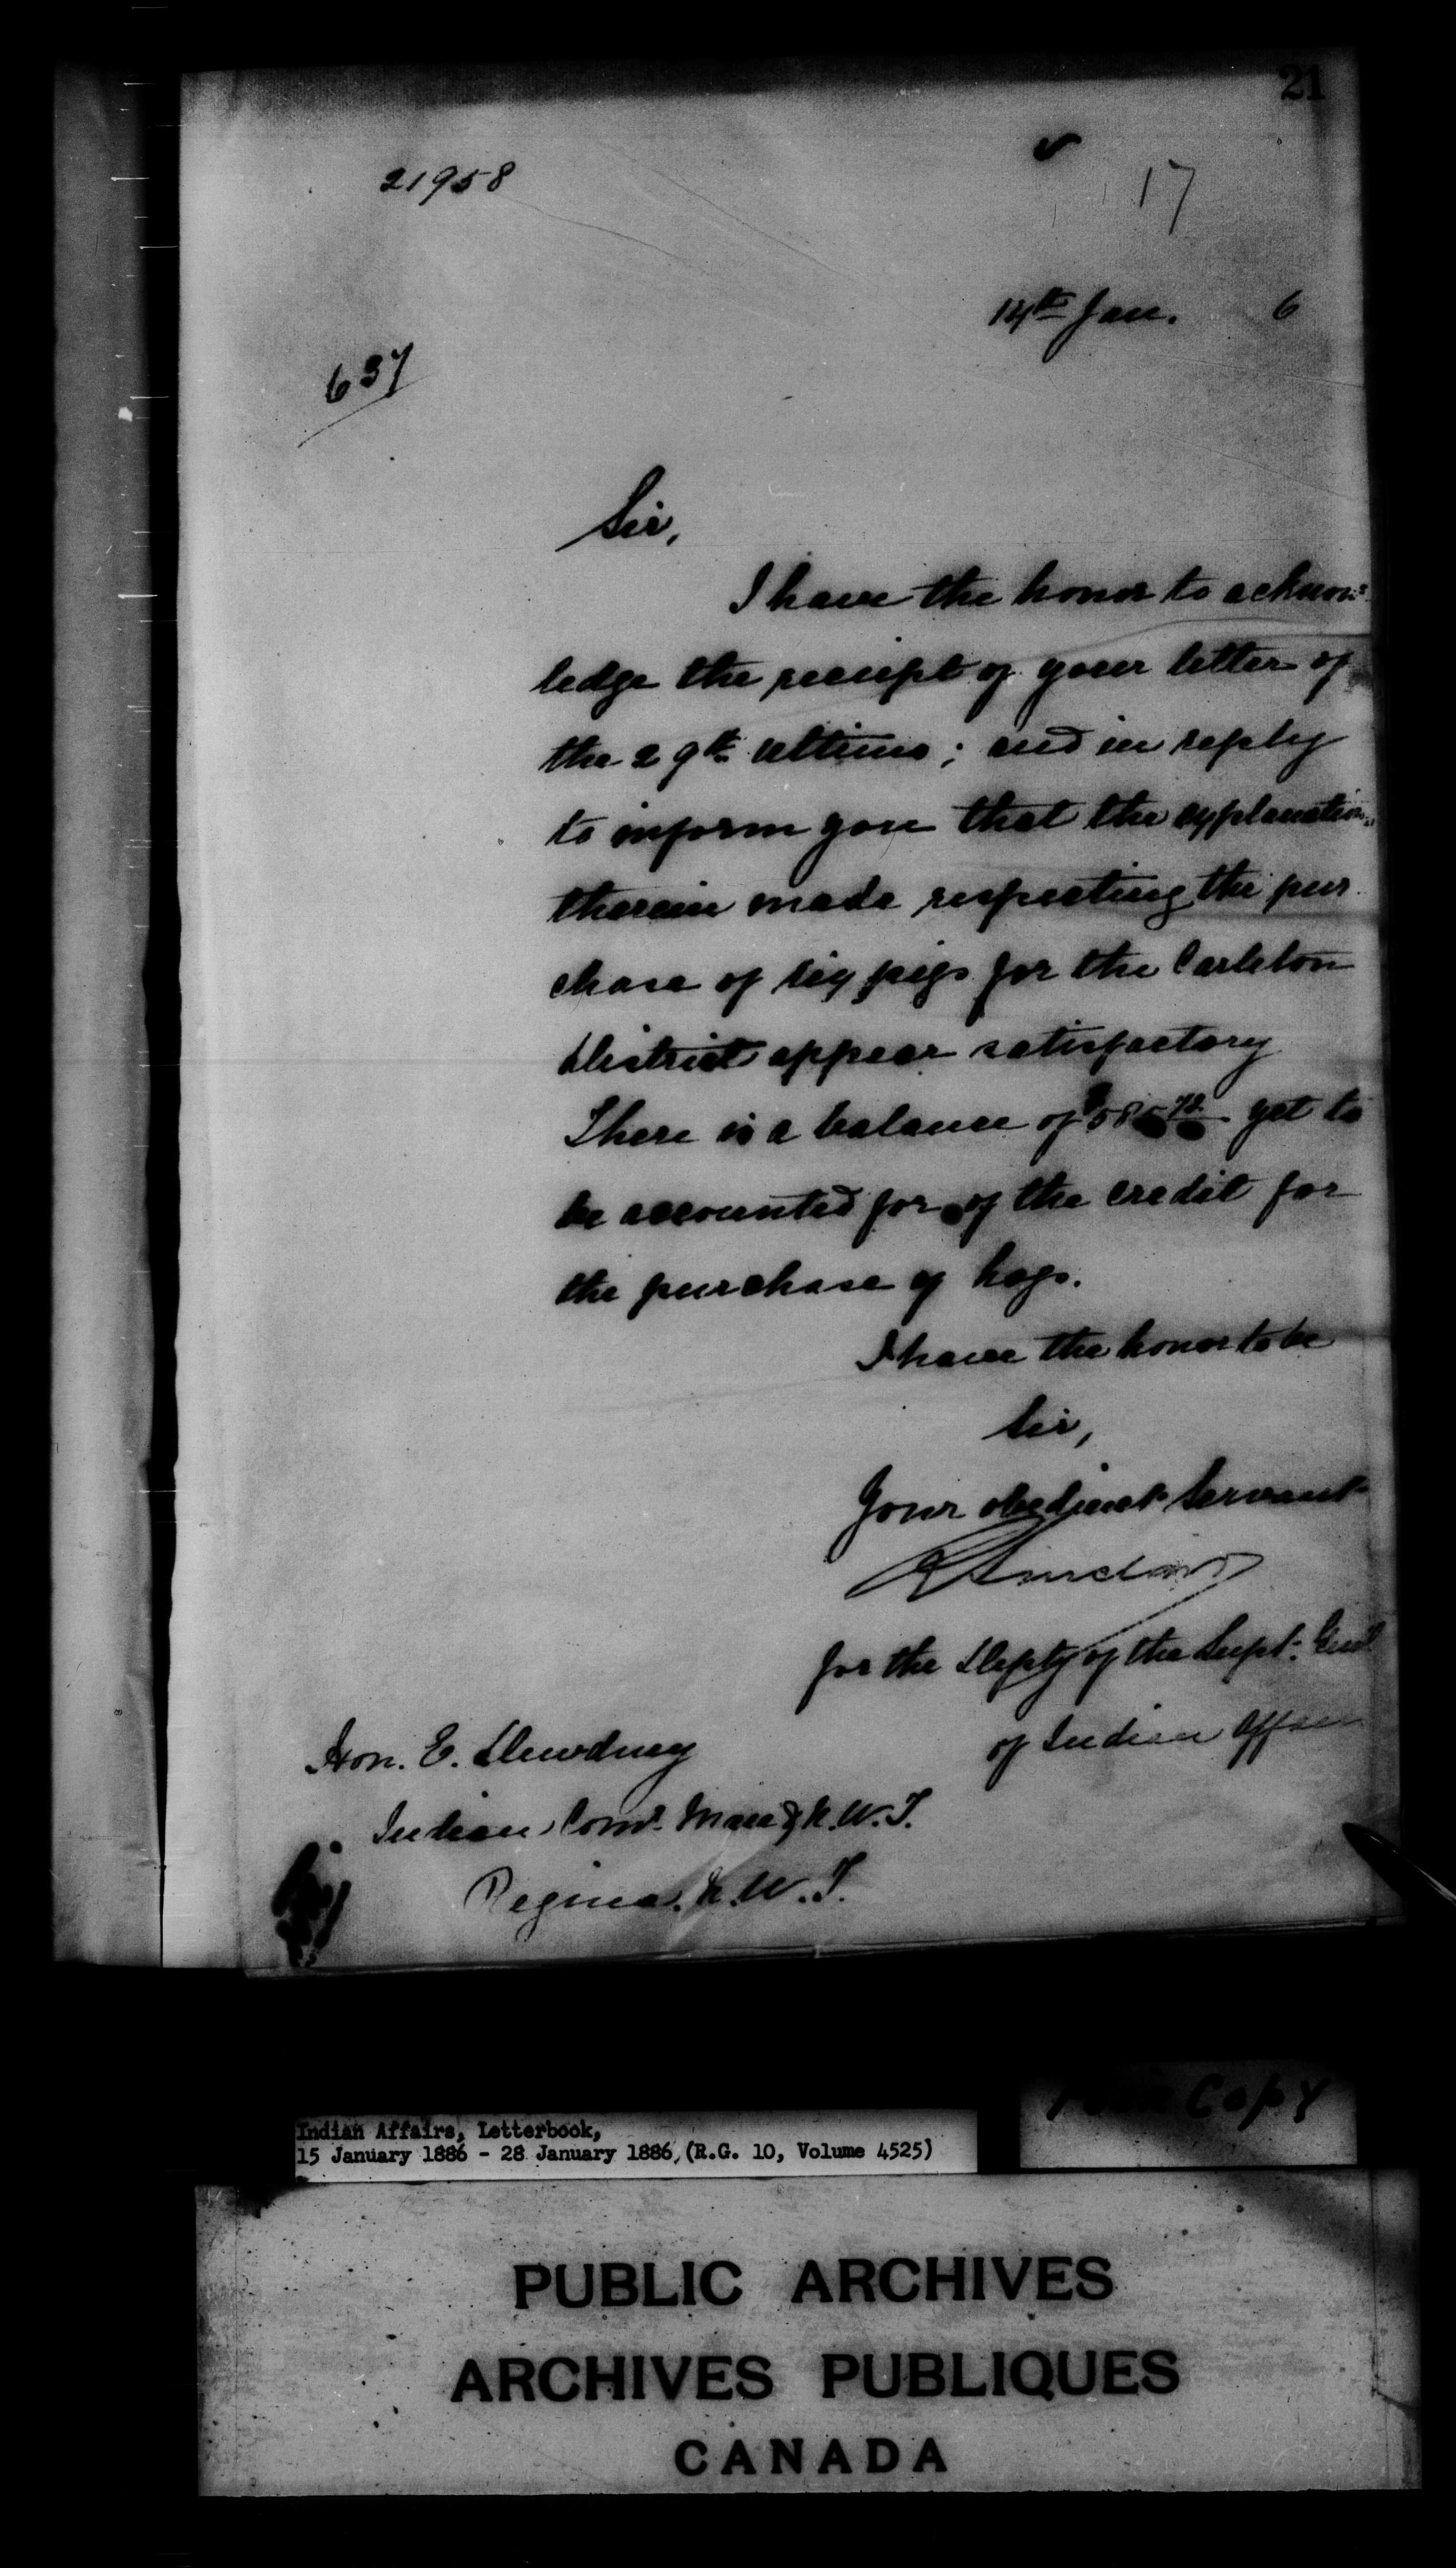 21
21958
17
14th Jan. 6
637
Sir,
I have the honor to acknow=
ledge the receipt of your letter of
the 29th ultimo; and in reply
to inform you that the explanations
therein made respecting the pur
chase of six pigs for the Carleton
District appear satisfactory
There is a balance of yet to
be accounted for of the credit for
the purchase of hogs.
I have the honor to be
Sir,
Your obedient Servant
R Sinclair
for the Depty of the Supt. Genl
of Indian Affairs
Hon. E. Dewdney
Indian Comr. Man & N.W.T.
Regina, N.W.T.
Copy
Indian Affairs, Letterbook,
15 January 1886 - 28 January 1886, (R.G. 10, Volume 4525)
PUBLIC ARCHIVES
ARCHIVES PUBLIQUES
CANADA